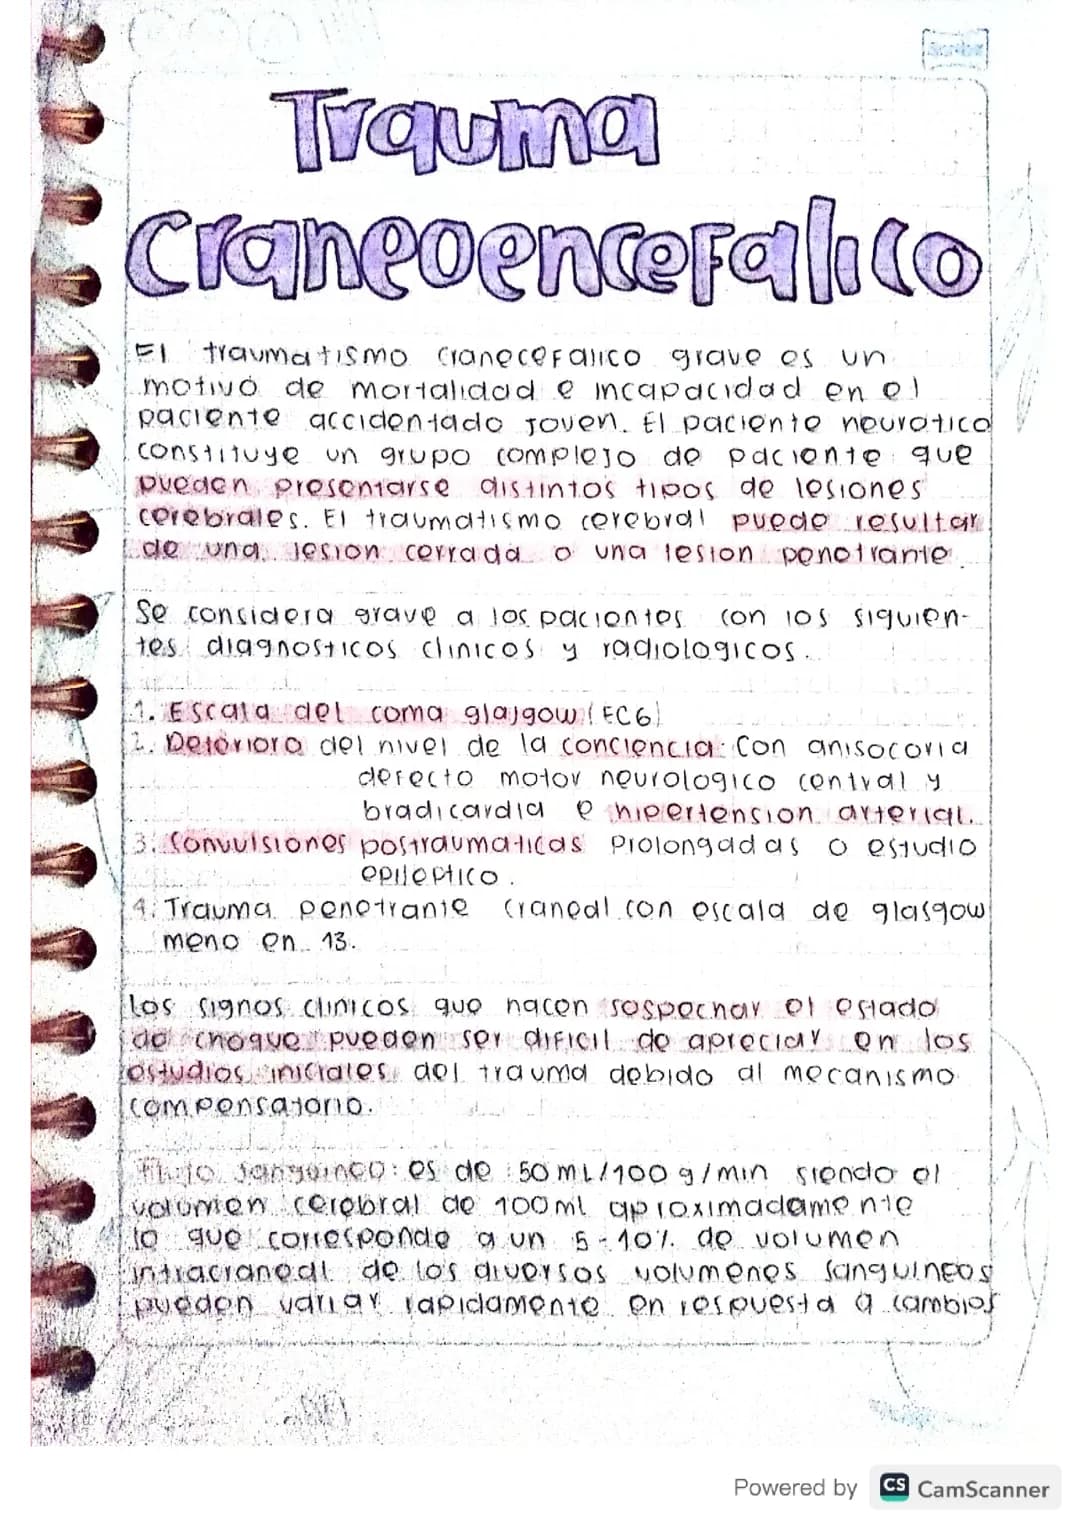 Scribe
Trauma
Craneoencefalico
El traumatismo cranecefalico grave es un
motivo de mortalidad e incapacidad en el
paciente accidentado joven. El paciente neurotico
constituye un grupo complejo de paciente que
pueden presentarse distintos tipos de lesiones
cerebrales. El traumatismo cerebral puede resultar
de una lesion cerrada o una lesion penetrante.
Se considera grave a los pacientes con los siguien-
tes diagnosticos clinicos y radiologicos.
1. Escala del coma glasgow (ECG)
2. Deterioro del nivel de la conciencia: Con anisocoria
defecto motor neurologico central y
bradicardia e hipertension arterial.
3. Convulsiones postraumaticas Prolongadas o estudio
epileptico.
4. Trauma penetrante craneal con escala de glasgow
meno en 13.
los signos clinicos que hacen sospechar el estado
de choque pueden ser dificil de apreciar en los
estudios iniciales del trauma debido al mecanismo
compensatorio.
Flujo sanguineo: es de 50 mL/100 g/min siendo el
volumen cerebral de 100 ml aproximadamente
lo que corresponde a un 5-10% de volumen
intracraneal de los diversos volumenes sanguineos
pueden variar rapidamente en respuesta a cambios
Powered by CS CamScanner